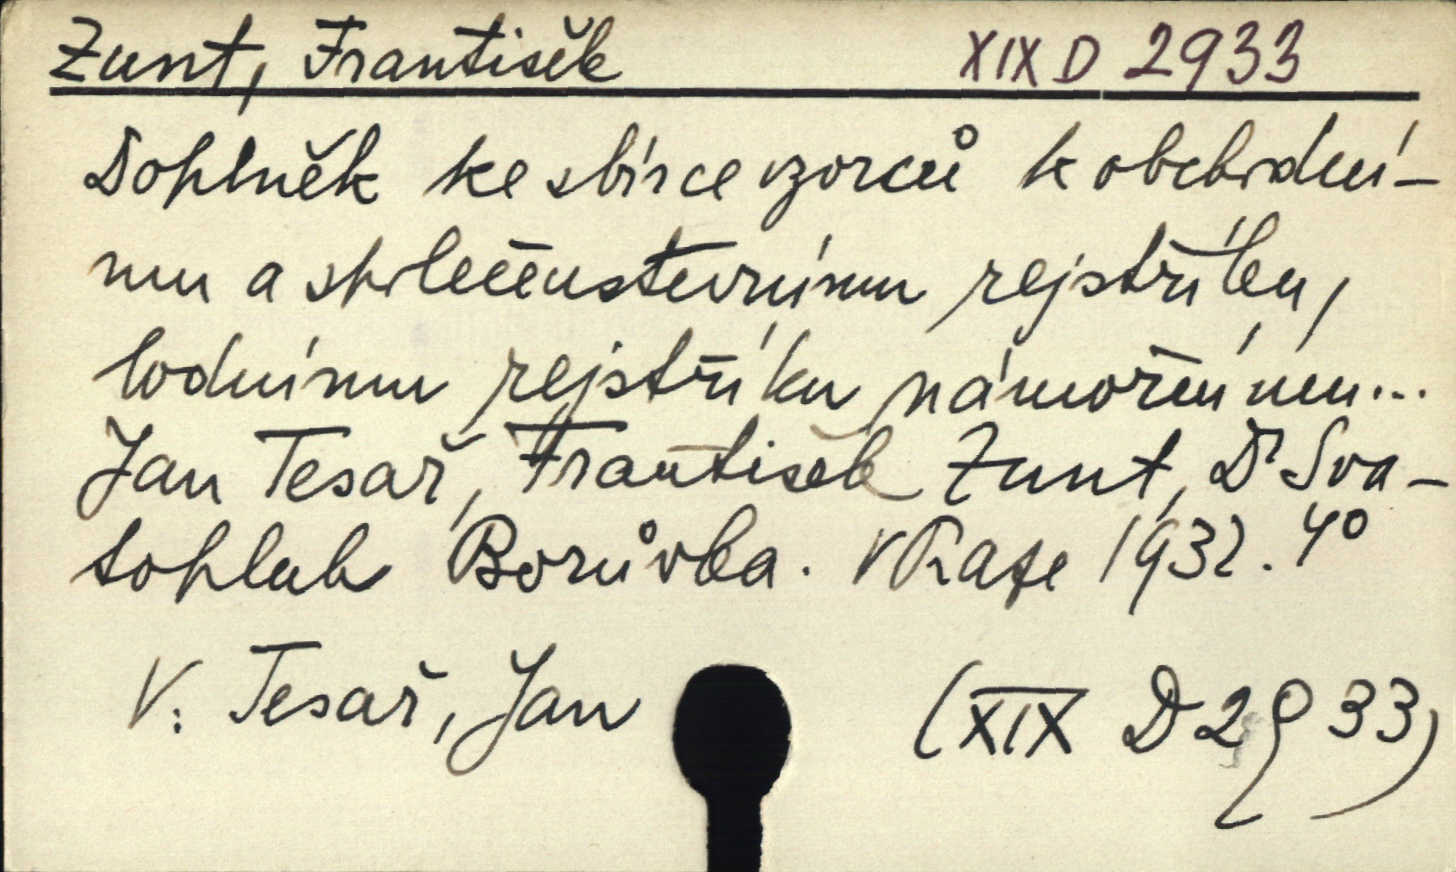 Zunt, František XIX D 2933
Doplněk ke sbírce vzorců k obchodní-
mu a společenstevnímu rejstříku,
lodnímu rejstříku námořnímu...
Jan Tesař, František Zunt, Dr Sva-
topluk Borůvka. V Praze 1932. 4°
V: Tesař, Jan (XIX D 2933)